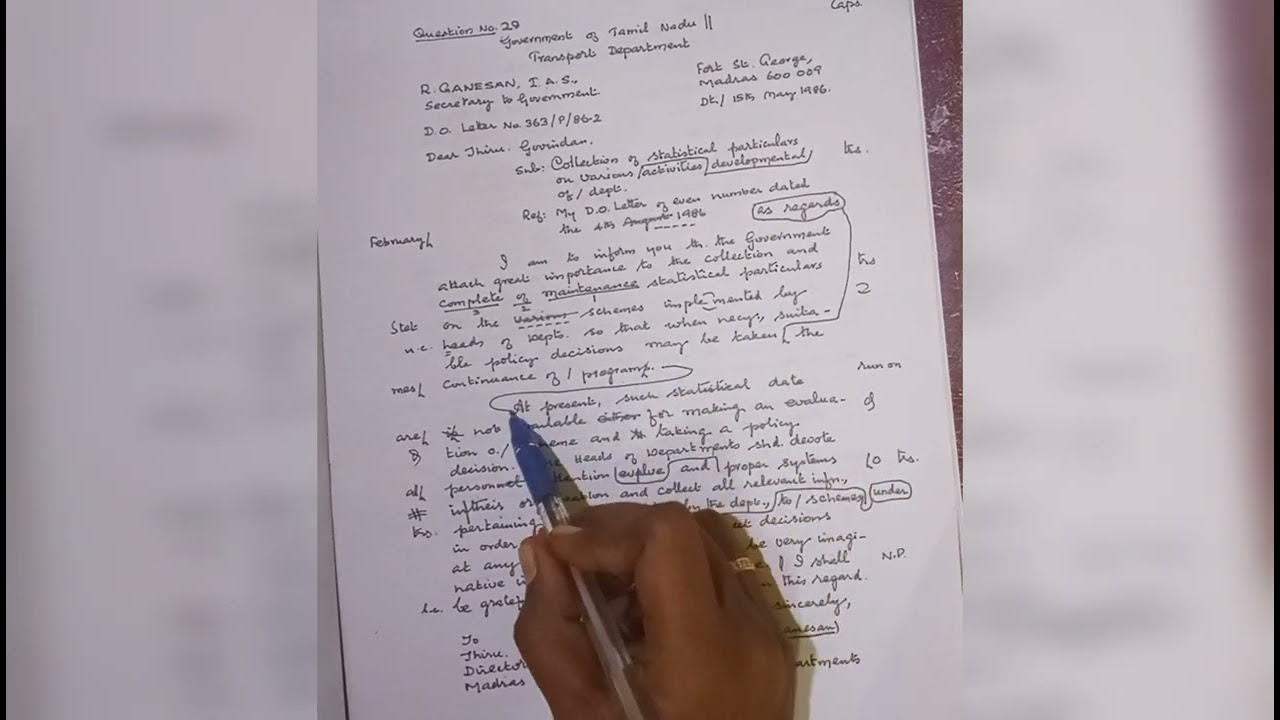 Caps.
Question No. 29
Government of Tamil Nadu ||
Transport Department
R. GANESAN, I.A.S.,
Secretary to Government
Fort St. George,
Madras 600 009
Dt/ 15th May 1986.
D.O. Letter No. 363/P/86-2
Dear Thiru. Govindan,
Sub: Collection of statistical particulars
on various activities developmental trs.
of / dept.
Ref: My D.O. Letter of even number dated
the 4th August 1986
as regards
February
I am to inform you th. the Government
attach great importance to the collection and
complete of maintenance statistical particulars trs
3 2 1
Stet on the various schemes implemented by 2
u.c. heads of Depts. so that when necy., suita-
ble policy decisions may be taken the
mes/ continuance of / program.
At present, such statistical date run on
are/ is not available either for making an evalua- of
tion o./ scheme and taking a policy
decision. Heads of Departments shd. devote
al/ personnel attention evolve and proper systems trs.
# in/their own and collect all relevant infn.,
trs. pertaining by the dept., to / schemes under
in order decisions
at any be very imagi-
native I shall N.P.
l.c. be gratef in this regard.
sincerely,
To
anesan)
Thiru.
Director artments
Madras